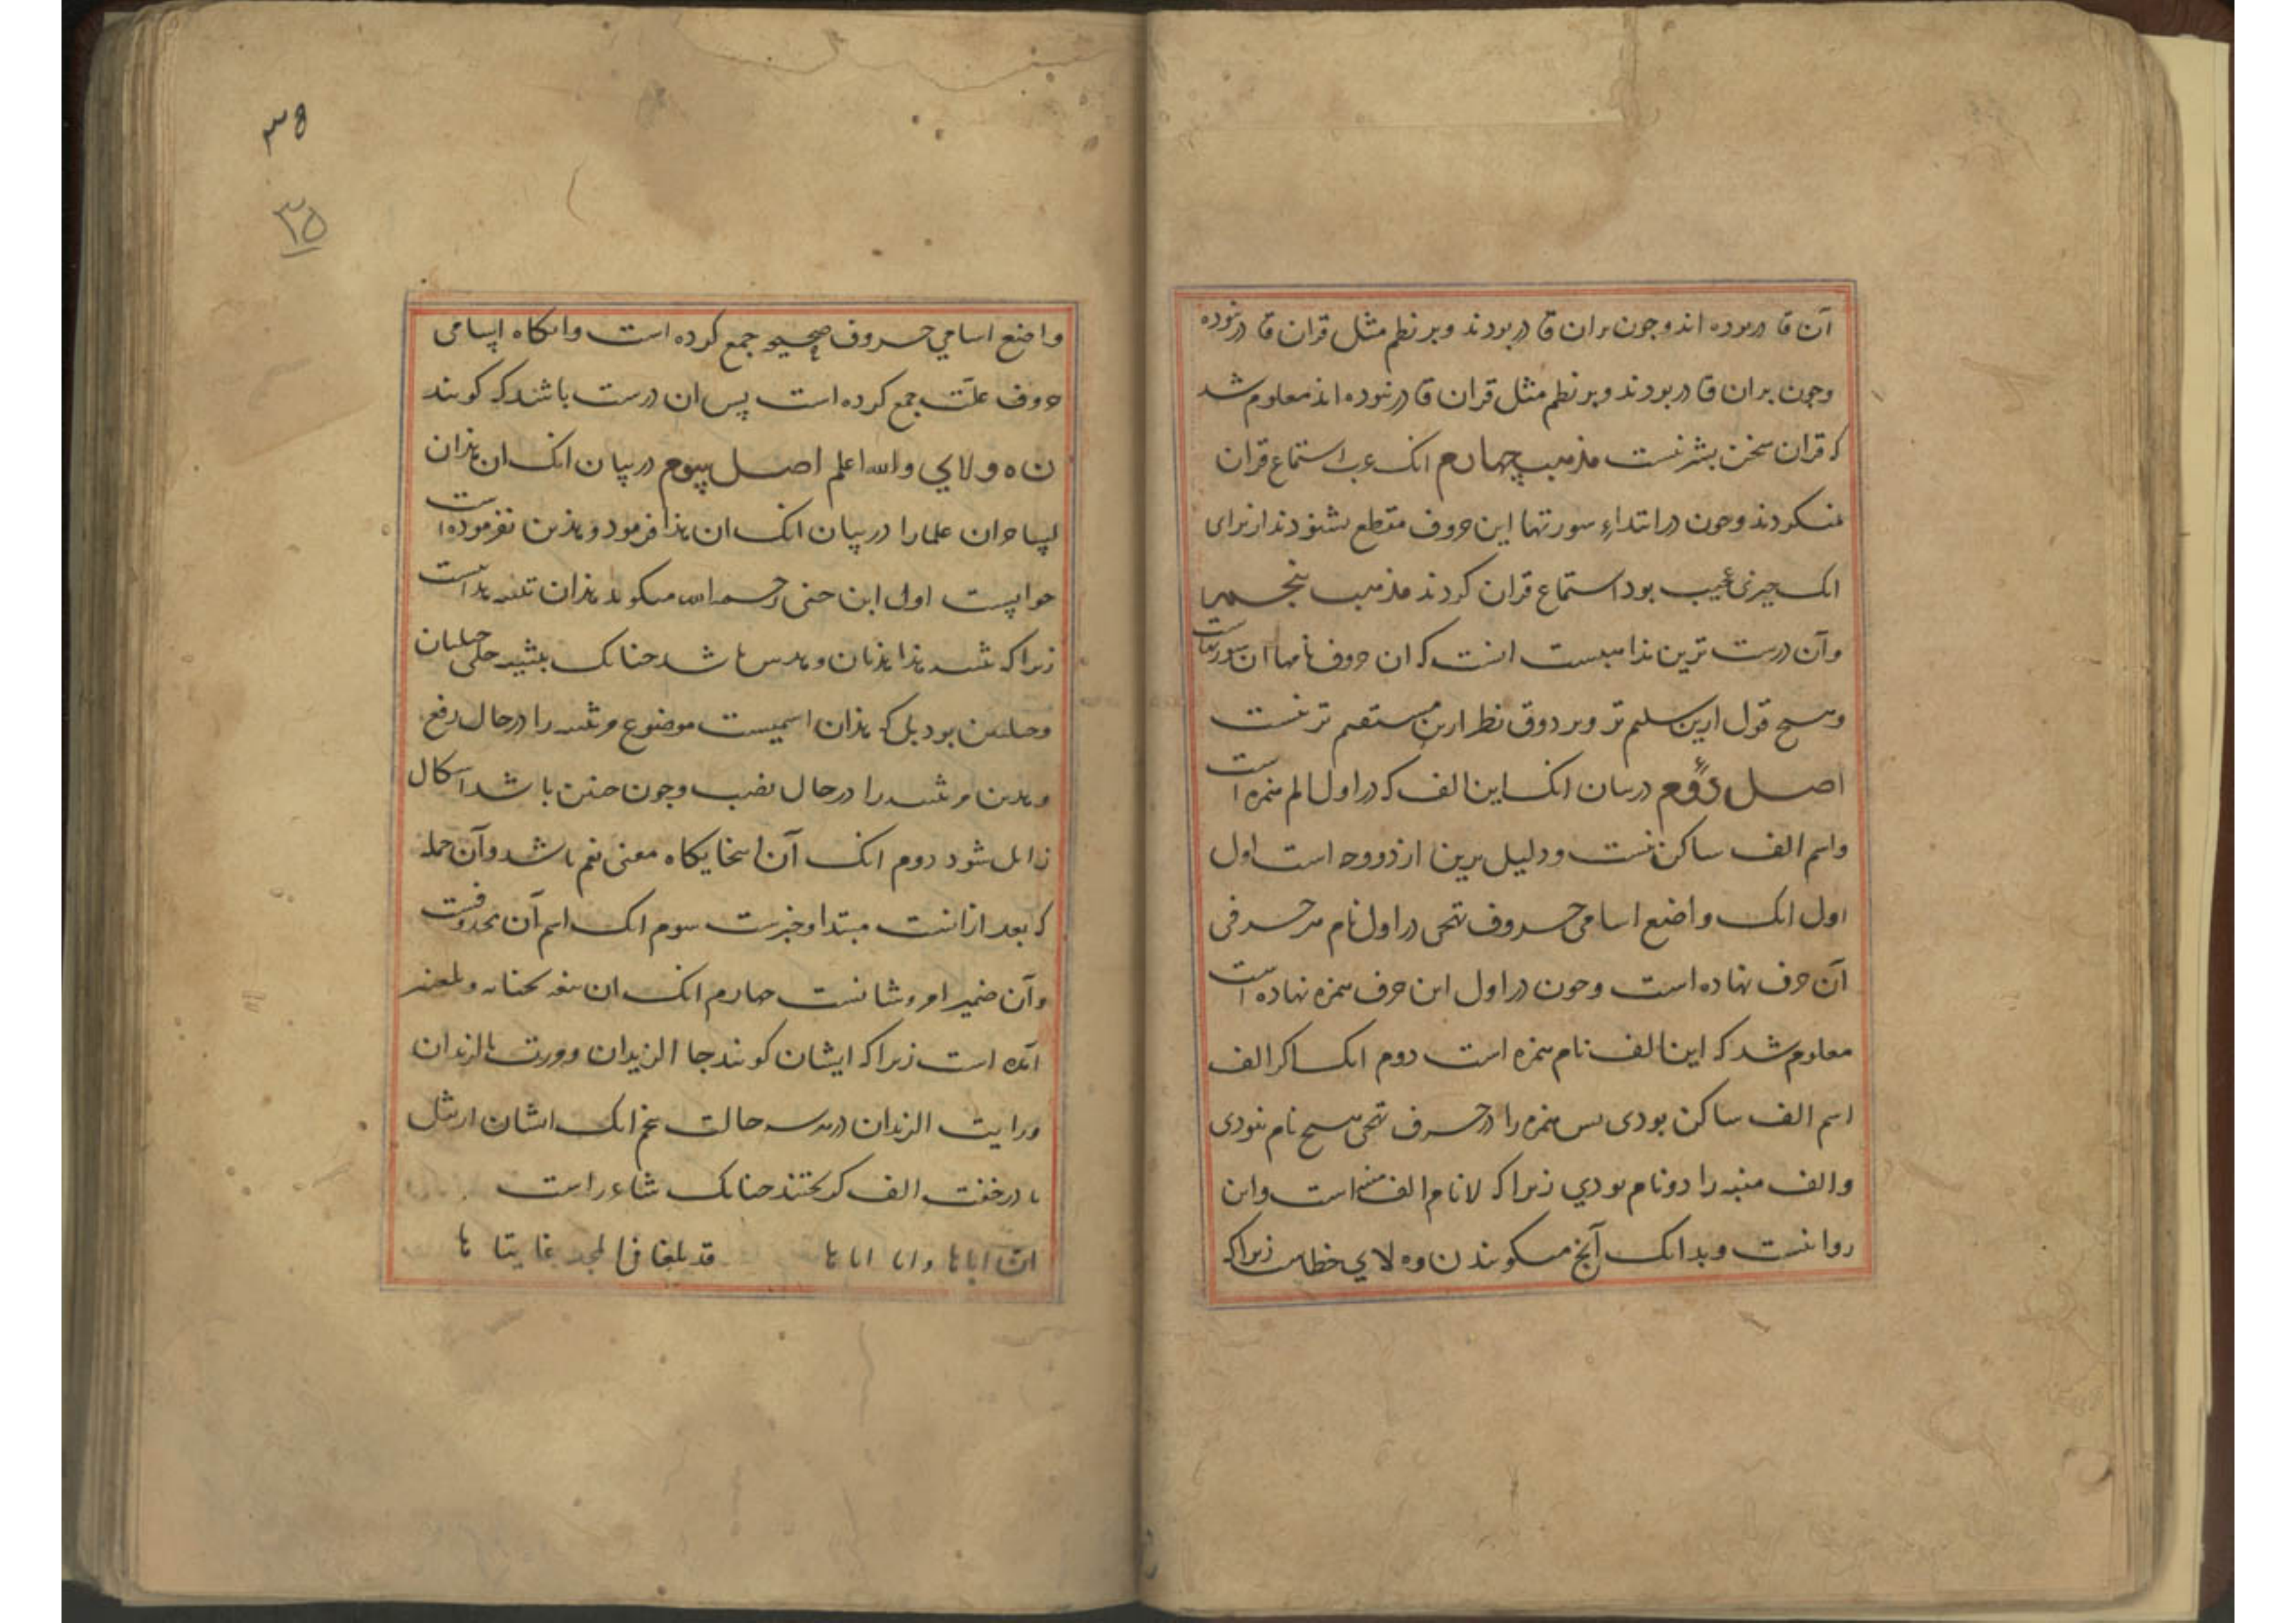 آن قادر بوده اند و جون بران قادر بودند و بر نظم مثل قران قادر نبوده
وجون بران قادر بودند و بر نظم مثل قران قادر نبوده اند معلوم شد
که قران سخن بشر نیست مذهب چهارم انک عرب استماع قران
نمیکردند وجون در ابتداء سورتها این حروف مقطع بشنودند از برای
انک چیزی عجیب بود استماع قران کردند مذهب پنجم
وآن درست ترین مذاهبست انست که ان حروف نامها ان سورتهاست
وهیچ قول ازین سلیم تر وبر ذوق نظر ازین مستقیم تر نیست
اصل دوم در بیان انک این الف که در اول الم همزه است
واسم الف ساکن نیست ودلیل برین از دو وجه است اول
اول انک واضع اسامی حروف تهجی در اول نام هر حرفی
آن حرف نهاده است وجون در اول این حرف همزه نهاده است
معلوم شد که این الف نام همزه است دوم انک اکر الف
اسم الف ساکن بودی پس همزه را در حرف تهجی هیچ نام نبودی
والف را دو نام بودي زیرا که لا نام الف است واین
روا نیست وبدانک آنج میکویند ن و ه لاي خطاست زیرا که
۳۵
۳۵
واضع اسامي حروف صحیح جمع کرده است وانکاه اسامی
حروف علت جمع کرده است پس ان درست باشد که کویند
ن ه و لا ي والله اعلم اصل سوم در بیان انک ان هذان
لساحران علما را در بیان انک ان هذا فرمود وهذین نفرموده است
جوابیست اول ابن جنی رحمه الله میکوید هذان تثنیه هذا نیست
زیرا که تثنیه هذا هذیان وهذیین باشد جنانک تثنیه حبلی حبلیان
وحبلیین بود بل که هذان اسمیست موضوع مر تثنیه را در حال رفع
وهذین مر تثنیه را در حال نصب وجون جنین باشد اشکال
زایل شود دوم انک آن اینجایکاه معنی نعم باشد وآن جمله
که بعد از انست مبتدا وخبرست سوم انک اسم آن محذوفست
وآن ضمیر امر وشانست جهارم انک ان
آمده است زیرا که ایشان کویند جا الزیدان ومررت بالزیدان
ورایت الزیدان در هر سه حالت پنجم انک ایشان از ثقل
یا در خفت الف کریختند جنانک شاعر راست
ان اباها وابا اباها قد بلغا فی المجد غایتاها